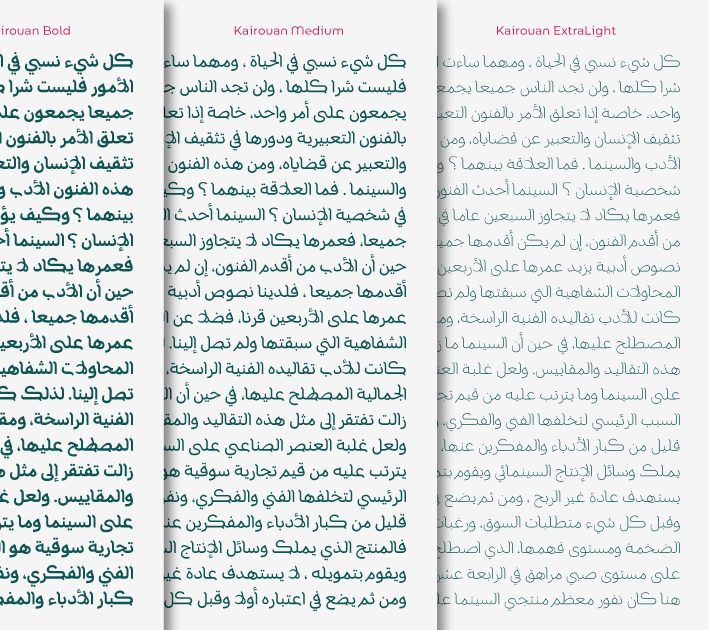 Kairouan ExtraLight
كل شيء نسبي في الحياة ، ومهما ساءت
شرا كلها ، ولن تجد الناس جميعا
واحد، خاصة إذا تعلق الأمر بالفنون
تثقيف الإنسان والتعبير عن قضاياه، ومن
الأدب والسينما . فما العلاقة بينهما ؟
شخصية الإنسان ؟ السينما أحدث الفنون
فعمرها يكاد لا يتجاوز السبعين عاما في
من أقدم الفنون، إن لم يكن أقدمها
نصوص أدبية يزيد عمرها على الأربعين
المحاولات الشفاهية التي سبقتها ولم
كانت للأدب تقاليده الفنية الراسخة،
المصطلح عليها، في حين أن السينما ما
هذه التقاليد والمقاييس. ولعل غلبة
على السينما وما يترتب عليه من قيم
السبب الرئيسي لتخلفها الفني والفكري،
قليل من كبار الأدباء والمفكرين عنها،
يملك وسائل الإنتاج السينمائي ويقوم
يستهدف عادة غير الربح ، ومن ثم يضع
وقبل كل شيء متطلبات السوق، ورغبات
الضخمة ومستوى فهمها، الذي
على مستوى صبي مراهق في الرابعة
هنا كان نفور معظم منتجي السينما
Kairouan Medium
كل شيء نسبي في الحياة ، ومهما
فليست شرا كلها ، ولن تجد الناس
يجمعون على أمر واحد، خاصة إذا
بالفنون التعبيرية ودورها في تثقيف
والتعبير عن قضاياه، ومن هذه الفنون
والسينما . فما العلاقة بينهما ؟
في شخصية الإنسان ؟ السينما أحدث
جميعا، فعمرها يكاد لا يتجاوز
حين أن الأدب من أقدم الفنون، إن لم
أقدمها جميعا ، فلدينا نصوص أدبية
عمرها على الأربعين قرنا، فضلا عن
الشفاهية التي سبقتها ولم تصل إلينا.
كانت للأدب تقاليده الفنية الراسخة،
الجمالية المصطلح عليها، في حين أن
زالت تفتقر إلى مثل هذه التقاليد
ولعل غلبة العنصر الصناعي على
يترتب عليه من قيم تجارية سوقية
الرئيسي لتخلفها الفني والفكري،
قليل من كبار الأدباء والمفكرين
فالمنتج الذي يملك وسائل الإنتاج
ويقوم بتمويله ، لا يستهدف عادة
ومن ثم يضع في اعتباره أولا وقبل كل
irouan Bold
كل شيء نسبي في
الأمور فليست شرا
جميعا يجمعون
تعلق الأمر بالفنون
تثقيف الإنسان
هذه الفنون الأدب
بينهما ؟ وكيف
الإنسان ؟ السينما
فعمرها يكاد لا
حين أن الأدب من
أقدمها جميعا ،
عمرها على
المحاولات
تصل إلينا. لذلك
الفنية الراسخة،
المصطلح عليها، في
زالت تفتقر إلى مثل
والمقاييس. ولعل
على السينما وما
تجارية سوقية
الفني والفكري،
كبار الأدباء